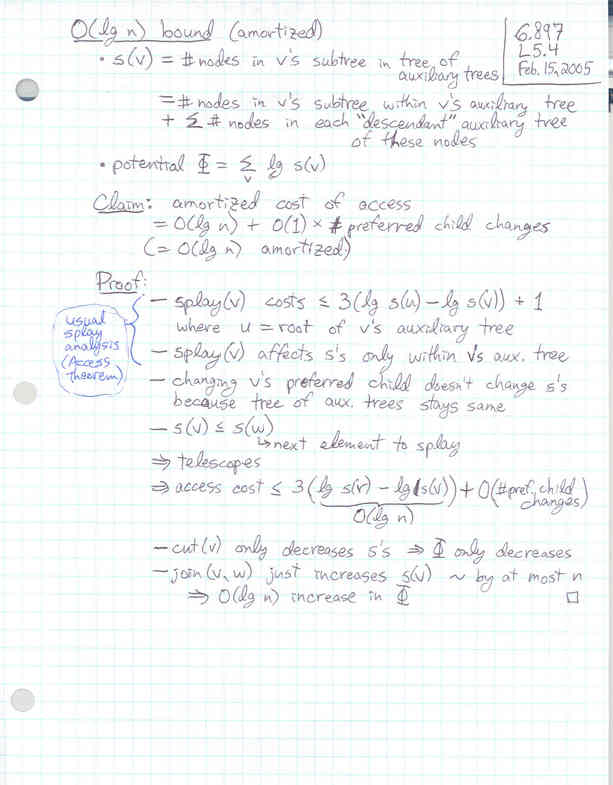 O(lg n) bound (amortized)
6.897
L5.4
Feb. 15, 2005
• s(v) = # nodes in v's subtree in tree of
auxiliary trees
= # nodes in v's subtree within v's auxiliary tree
+ Σ # nodes in each "descendant" auxiliary tree
of these nodes
• potential Φ = Σ lg s(v)
v
Claim: amortized cost of access
= O(lg n) + O(1) × # preferred child changes
(= O(lg n) amortized)
Proof:
— splay(v) costs ≤ 3(lg s(u) - lg s(v)) + 1
where u = root of v's auxiliary tree
usual
splay
analysis
(Access
Theorem)
— splay(v) affects s's only within v's aux. tree
— changing v's preferred child doesn't change s's
because tree of aux. trees stays same
— s(v) ≤ s(w)
↳ next element to splay
⇒ telescopes
⇒ access cost ≤ 3(lg s(r) - lg s(v)) + O(#pref. child
changes)
O(lg n)
— cut(v) only decreases s's ⇒ Φ only decreases
— join(v,w) just increases s(v) ~ by at most n
⇒ O(lg n) increase in Φ □